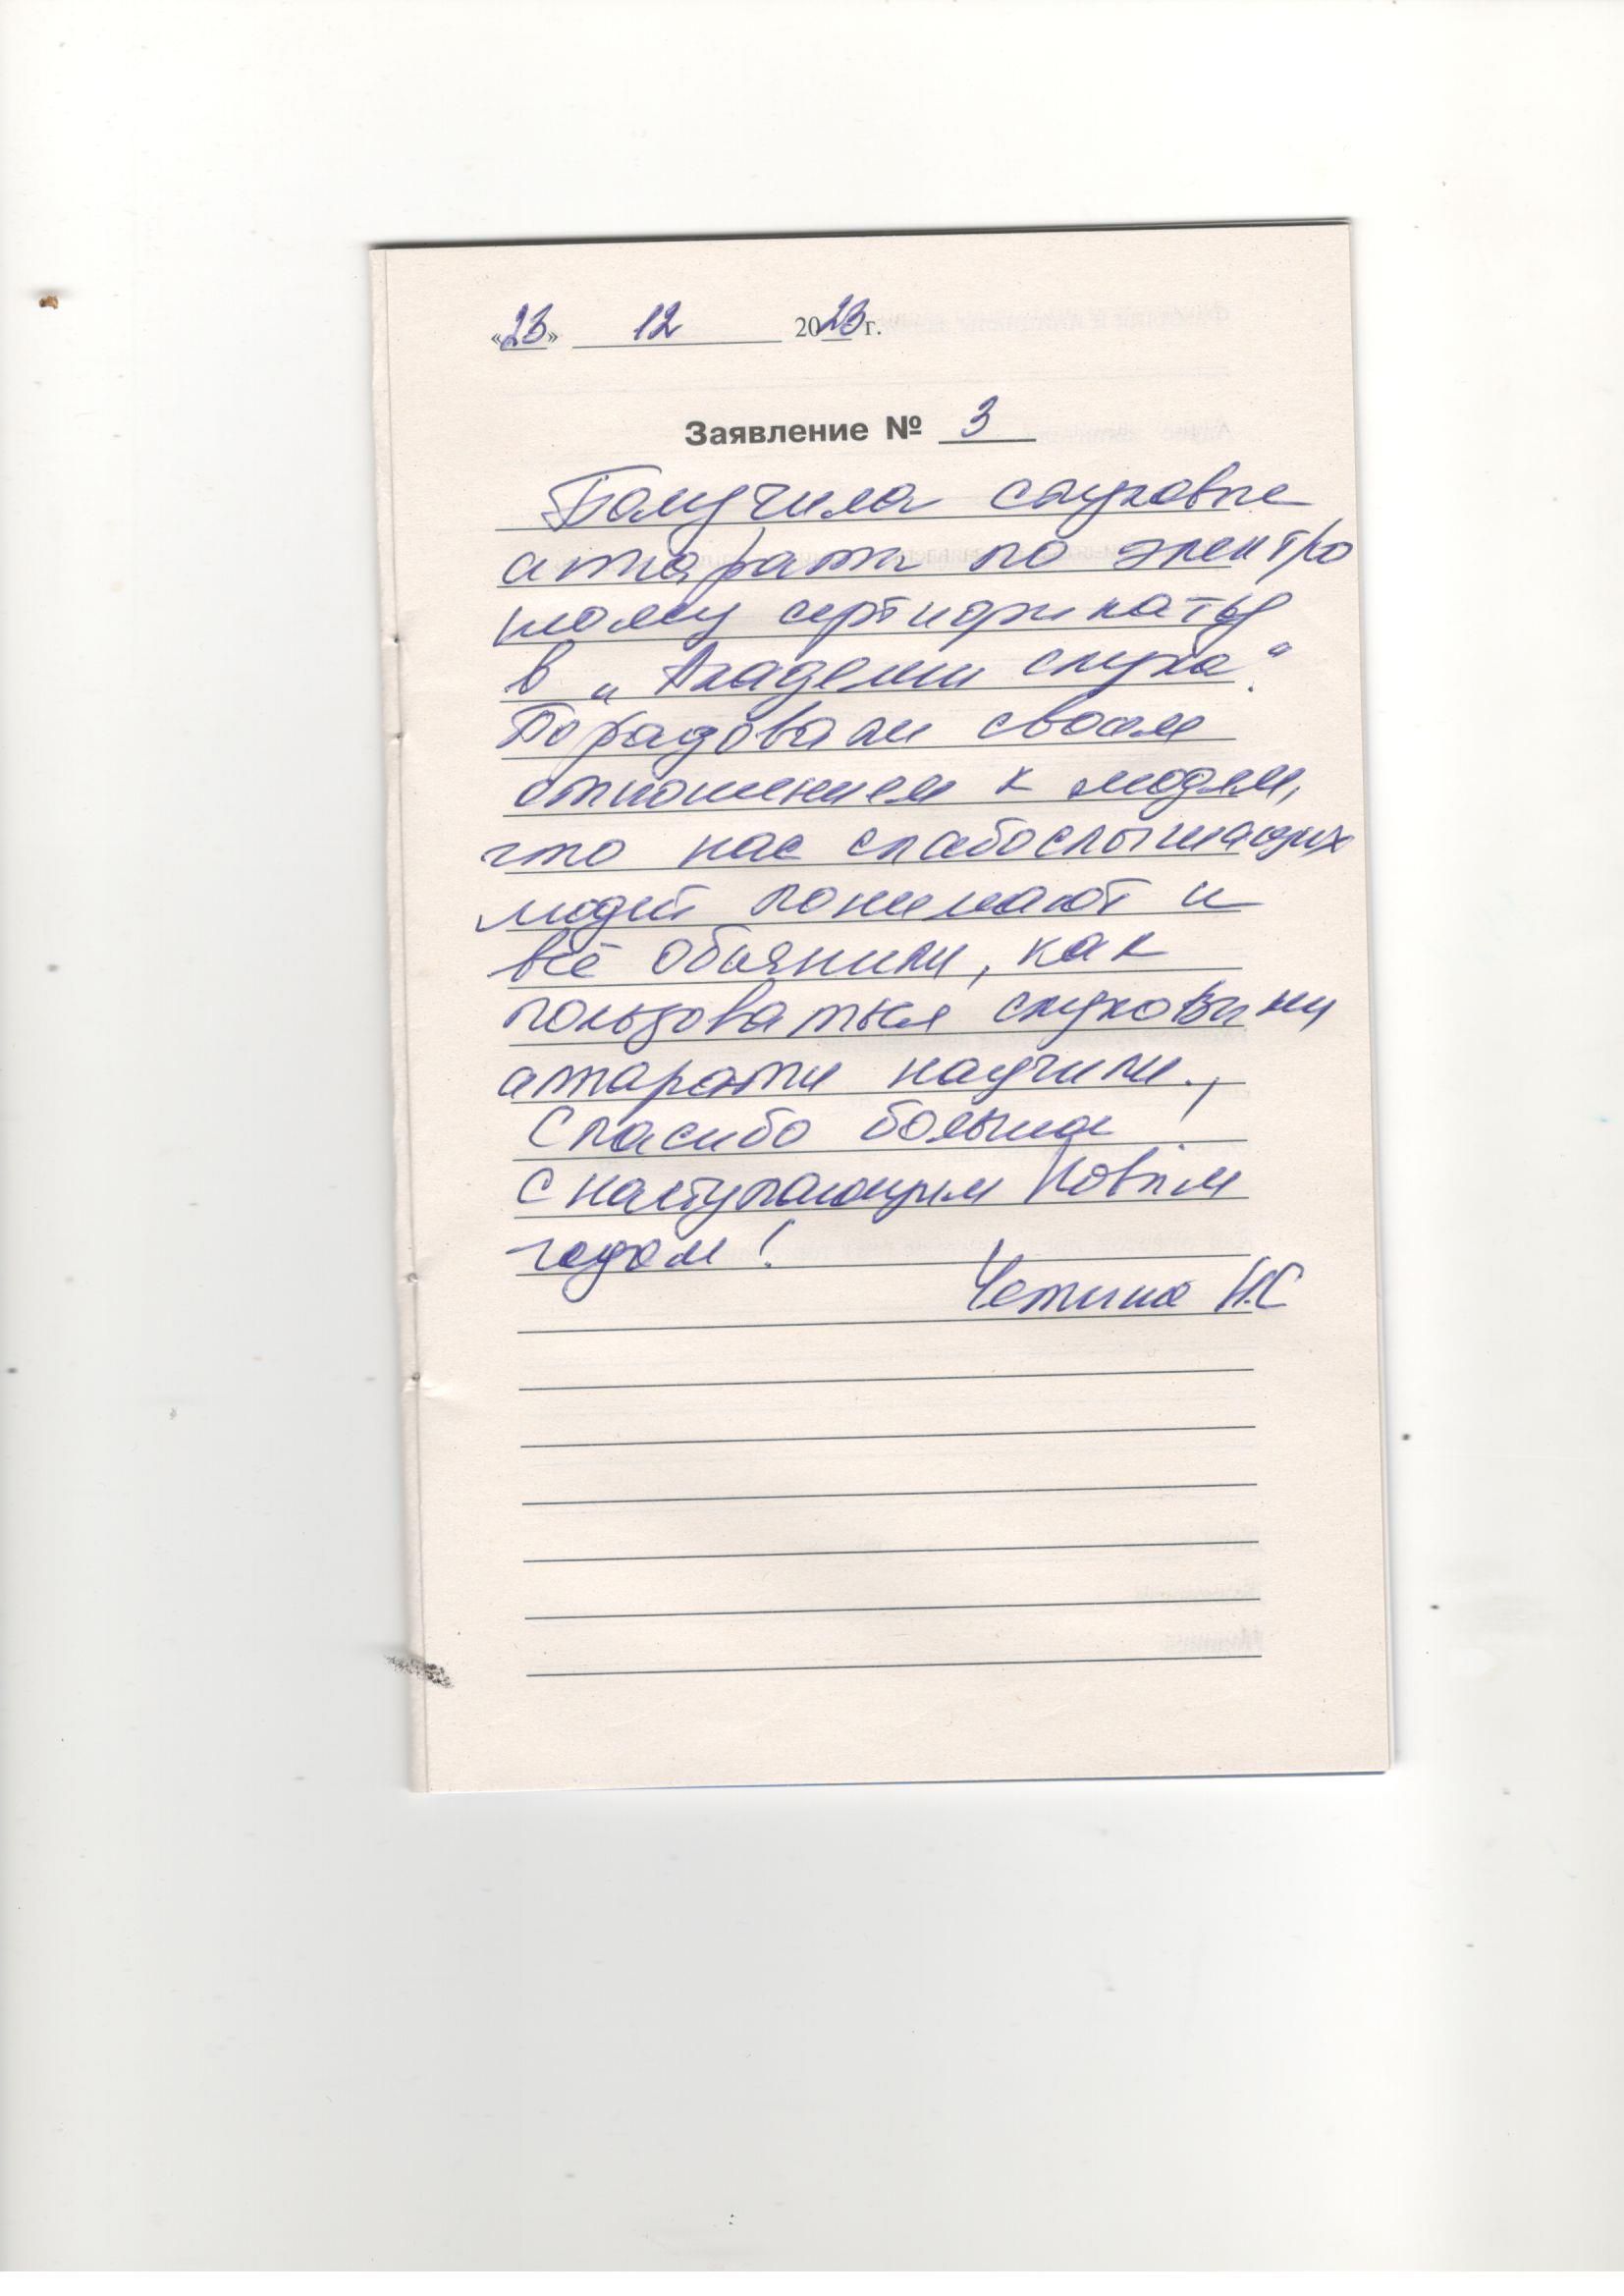 «23» 12 2023 г.
Заявление № 3
Получила слуховые
аппараты по электро
ному сертификату
в „Академии слуха“.
Порадовали своим
отношением к людям,
что нас слабослышащих
людей понимают и
всё обьянили, как
пользоваться слуховыми
аппараты научили.,
Спасибо большое!
С наступающим Новым
годом!
Четина Н.С